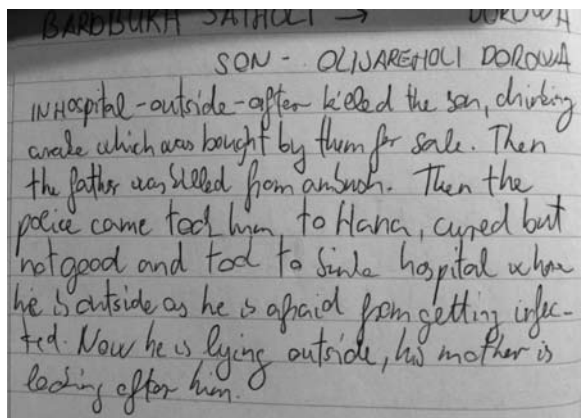 BARDBURA SATHOLI → DOROWA
SON - OLIJAREHOLI DOROWA
IN Hospital - outside - after killed the son, drinking
arake which was bought by them for sale. Then
the father was killed from ambush. Then the
police came tood him, to Hana, cured but
not good and tood to Sinle hospital where
he is outside as he is afraid from getting infec-
ted. Now he is lying outside, his mother is
looking after him.